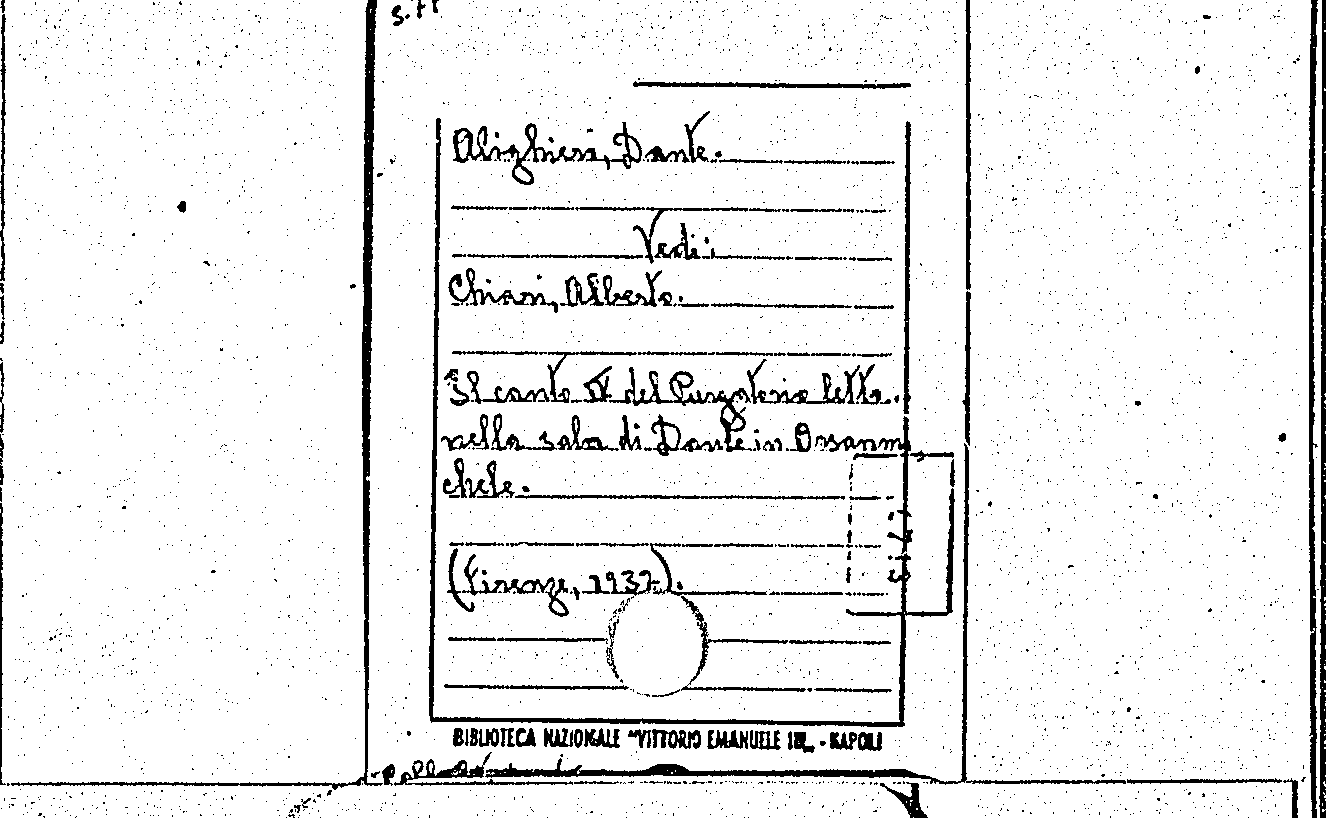 Alighieri, Dante.
Vedi:
Chiari, Alberto.
Il canto IX del Purgatorio letto
nella sala di Dante in Orsanmi
chele.
(Firenze, 1937).
BIBLIOTECA NAZIONALE "VITTORIO EMANUELE III„ - NAPOLI